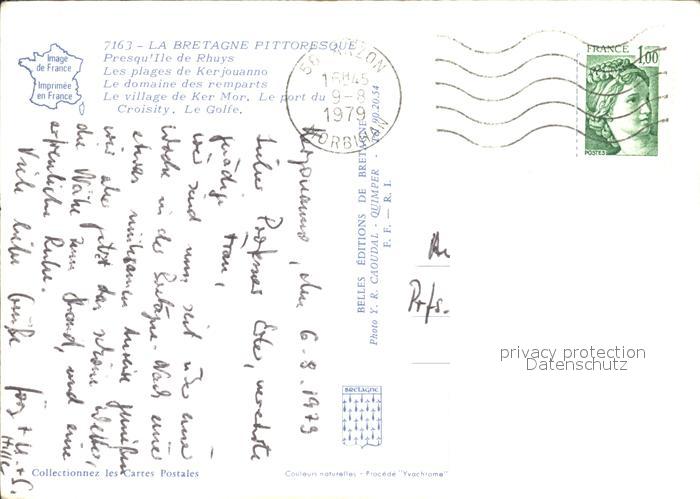 7163 - LA BRETAGNE PITTORESQUE
Presqu'Ile de Rhuys
Les plages de Kerjouanno
Le domaine des remparts
Le village de Ker Mor. Le port du
Croisity. Le Golfe.
Image
de France
Imprimée
en France
56 ARZON
15H45
9-8
1979
MORBIHAN
FRANCE
1,00
POSTES
Kerjouanno, den 6-8-1979
Lieber Professor, verehrte
gnädige Frau,
wir sind nun seit über einer
Woche in der Bretagne. Nach einer
etwas mühsamen Anreise genießen
wir aber jetzt das schöne Wetter,
die Nähe zum Strand, und eine
erfreuliche Ruhe.
Viele liebe Grüße
BELLES ÉDITIONS DE BRETAGNE
Photo Y. R. CAOUDAL - QUIMPER - Tél. 90.20.54
F. F. - R. I.
BRETAGNE
Profs.
privacy protection
Datenschutz
Collectionnez les Cartes Postales
Couleurs naturelles - Procédé "Yvachrome"